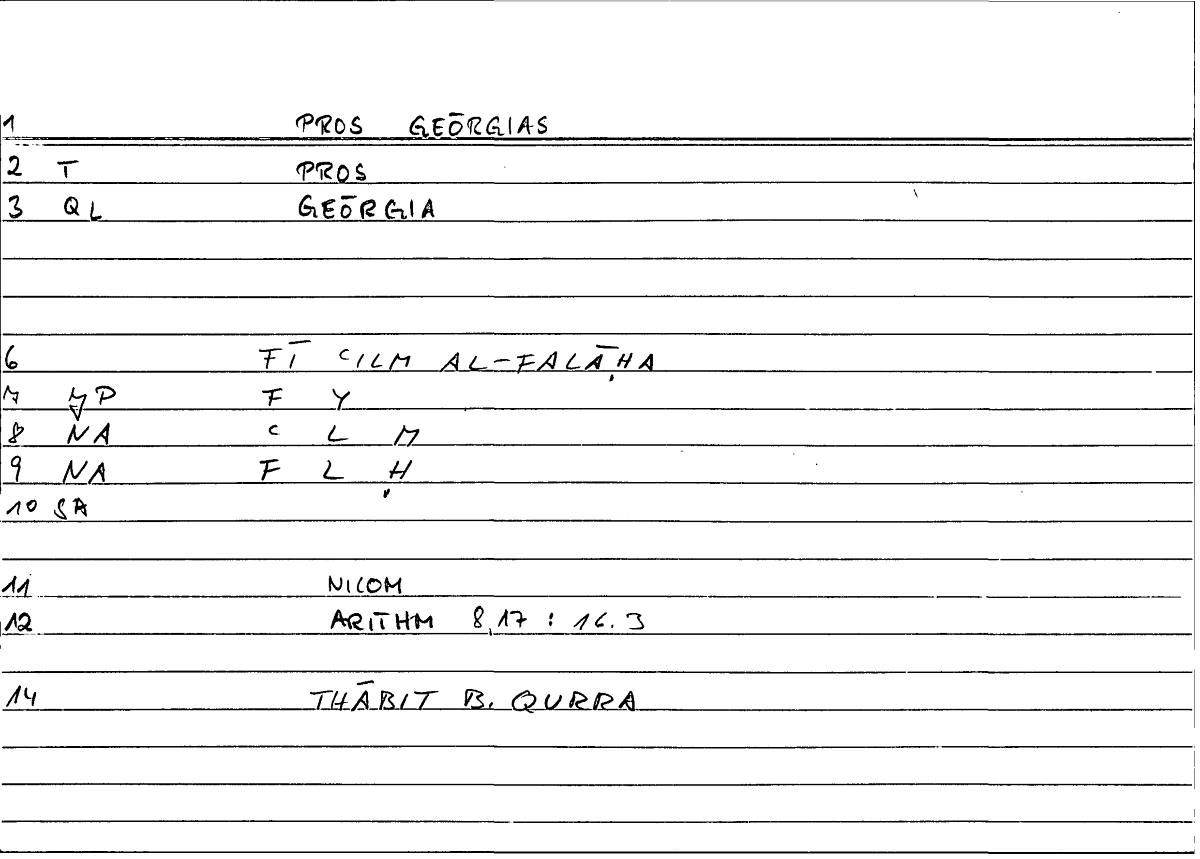 1 PROS GEŌRGIAS
2 T PROS
3 QL GEŌRGIA
6 FĪ ʿILM AL-FALĀḤA
7 P F Y
8 NA ʿ L M
9 NA F L Ḥ
10 SA
11 NICOM
12 ARITHM 8,17 : 16.3
14 THĀBIT B. QURRA